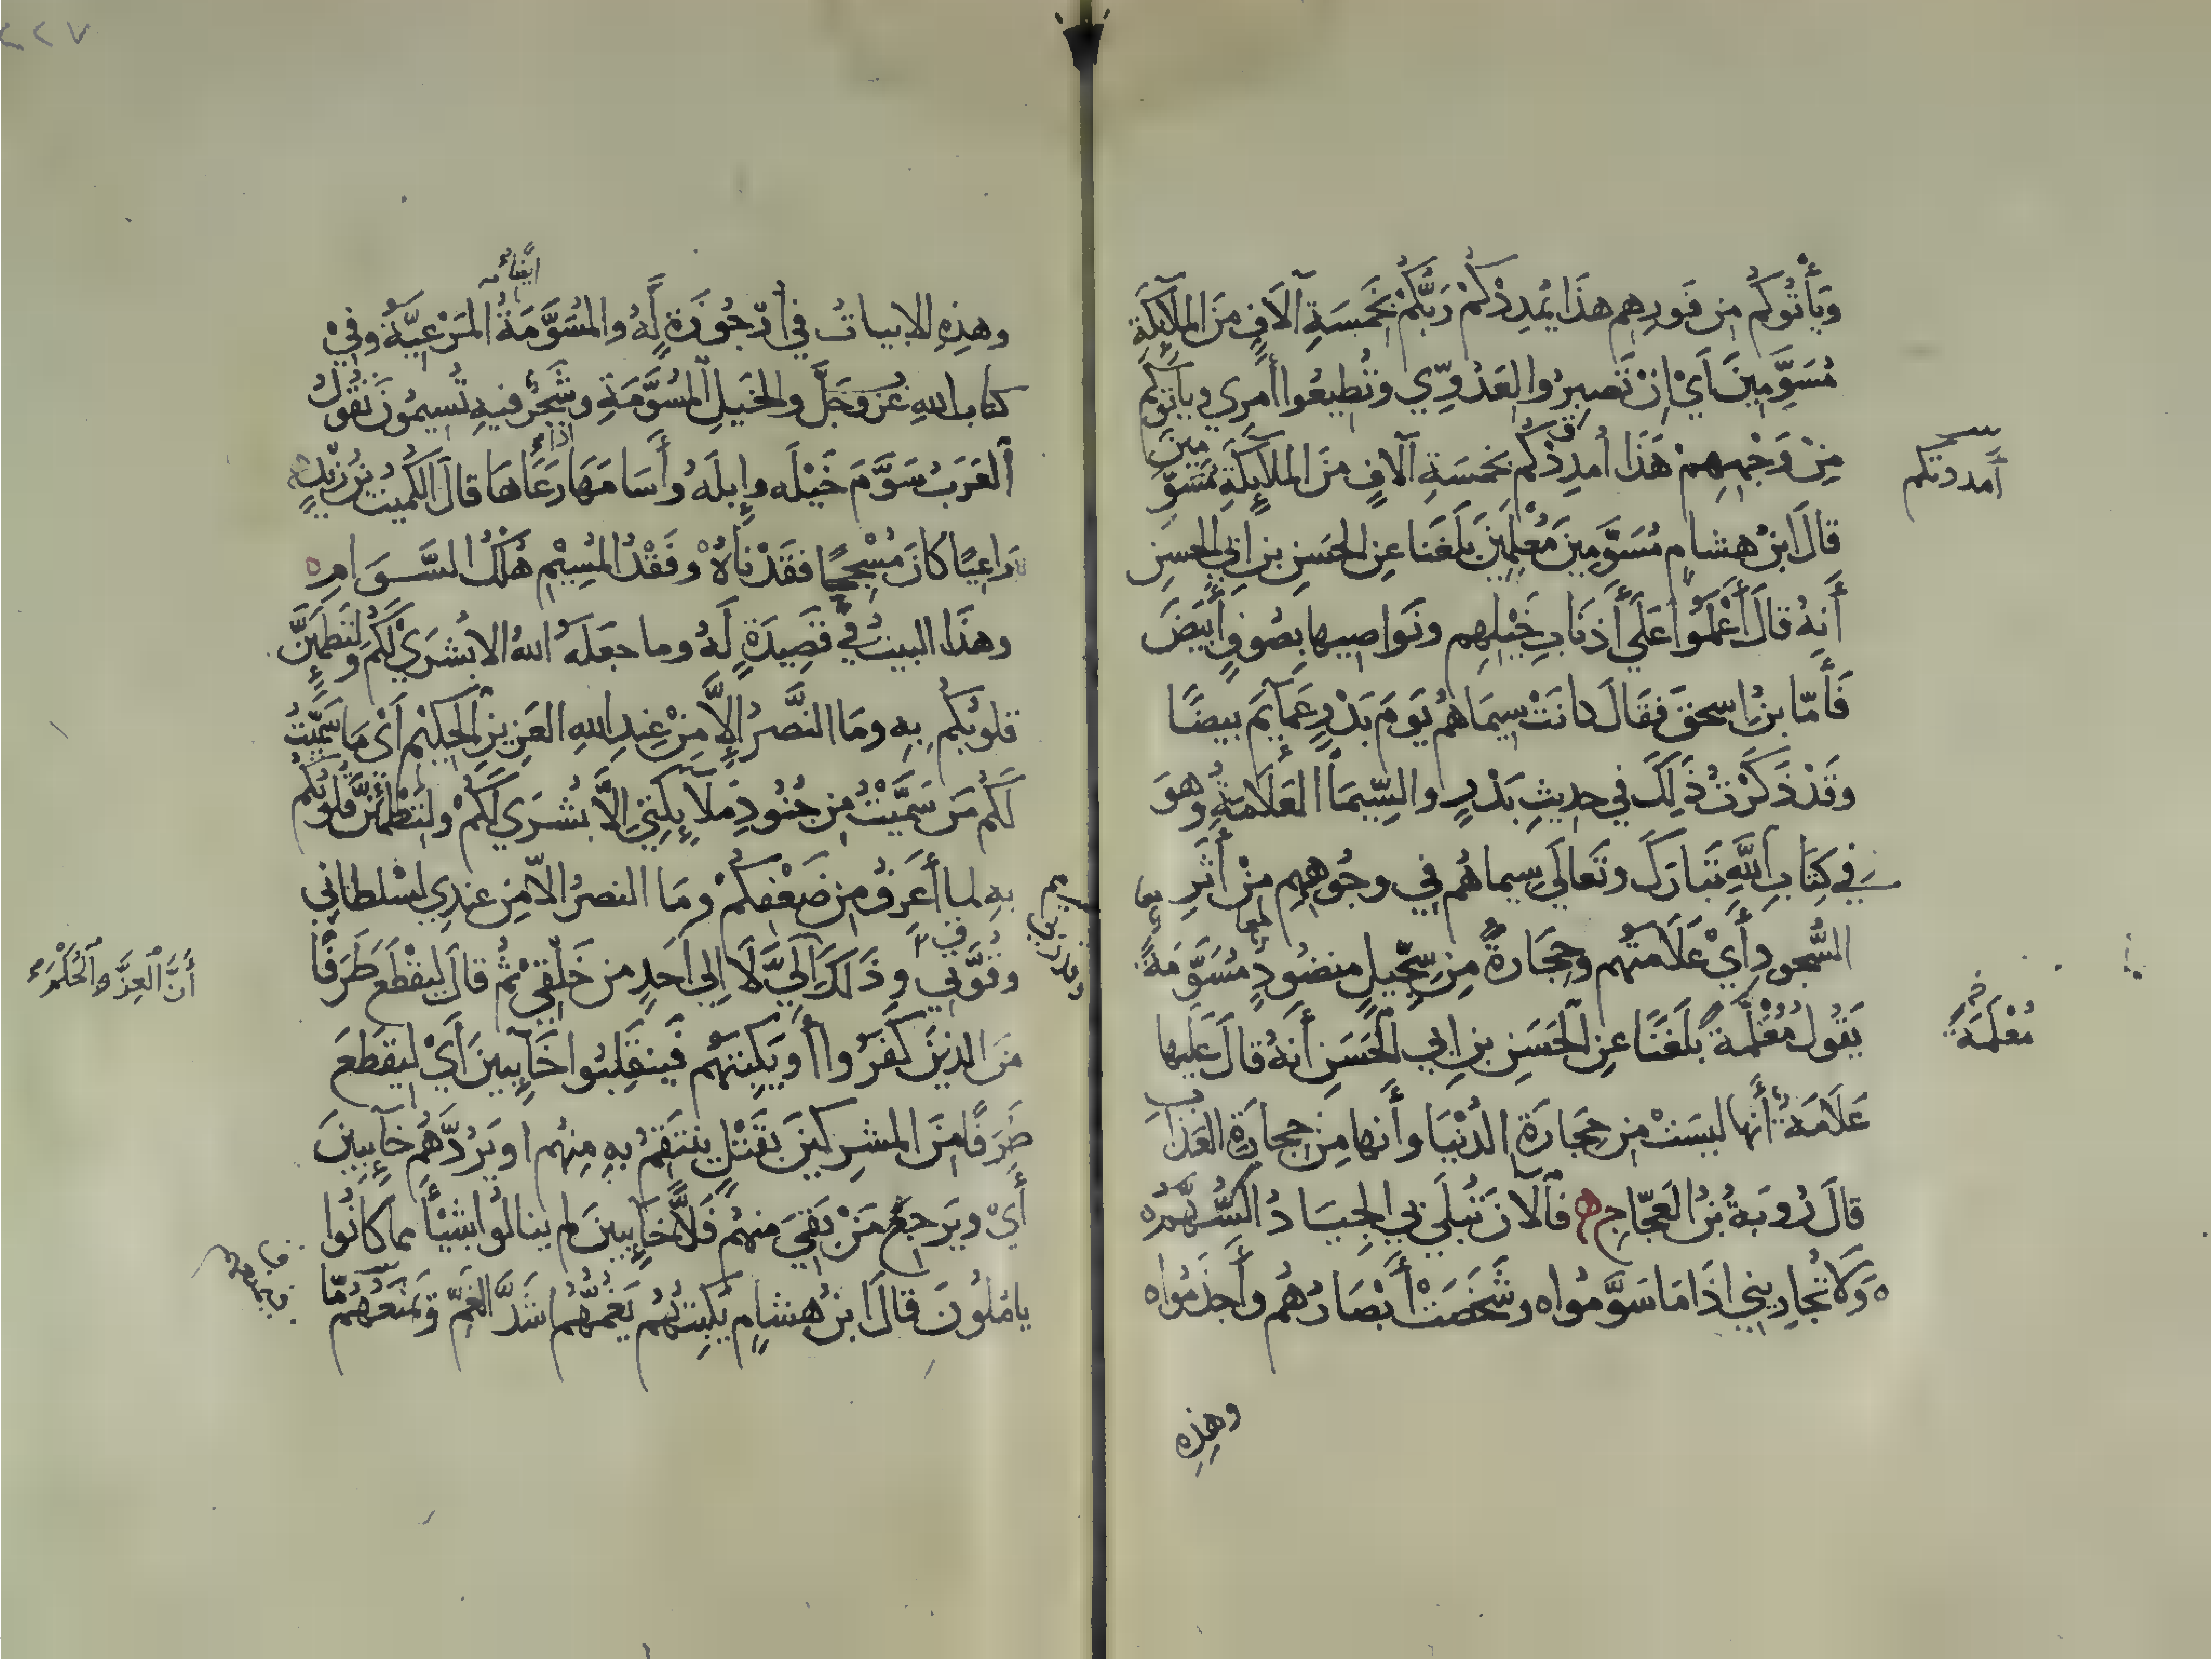 وَيَأْتُوكُم مِن فَورِهِم هذَا يُمدِدْكُمْ رَبُّكُمْ بَخَمسَةِ آلَافٍ مِنَ المَلَآئِكَةِ
مُسَوِّمِينَ أَيْ اِنْ تَصبِرُوا لِعَدُوِّي وتُطِيعُوا أَمرِي ويأتوكم
مِنْ وَجْهِهِمْ هَذَا أُمدِدْكُم بخمسَةِ آلافٍ مِنَ الملآئِكَةِ مُسَوِّمِينَ
أمددتكم
قالَ ابنُ هشامٍ مُسَوَّمِينَ مُعْلِمِينَ بَلَغَنا عنِ الحسَنِ بنِ ابِي الحسَنِ
أَنهُ قالَ أَعْلَمُوا عَلَى أَذنَابِ خَيْلِهِم ونَواصِيها بِصُوفٍ أَبيَضَ
فَأَمّا بنُ اِسحقَ فقَالَ كانَتْ سِيمَاهُم يَومَ بَدْرٍ عَمَآئِمَ بيضًا
وَقَدْ ذَكَرْتُ ذَلِكَ في حديثِ بَدْرٍ والسِّيمَا العَلَامَةُ وهوَ
في كِتَابِ اللَّهِ تَبَارَكَ وتَعالَى سِيماهُم فِي وجُوهِهِم مِنْ أَثَرِ
السُّجودِ أَيْ عَلَامَتُهُم وحِجَارَةً مِن سِجِّيلٍ منضُودٍ مُسَوَّمَةً
يَقُولُ مُعْلَمَةً بَلَغَنَا عنِ الحَسَنِ بنِ ابي الحَسَنِ أَنهُ قالَ عَلَيها
مُعْلَمَةً
عَلَامَةٌ أَنَّها ليسَتْ مِن حِجَارَةِ الدُّنيَا وأَنها مِنْ حجارَةِ العَذابِ
قالَ رُوبَةُ بنُ العَجّاجِ فالآنَ تُبلَى بي الجِيَادُ السُّهَّمُ
وَلَا تُجَارِيني اذَا مَا سَوَّمُوا وشَخَصَتْ أَبْصَارُهُم وأَجذَمُوا
وهذِهِ
٢٢٧
وهذِهِ الابياتُ في أُرْجُوزَةٍ لَهُ والمُسَوَّمَةُ ايضًا المَرْعِيَّةُ وفِيْ
كتابِ اللهِ عزَّ وجَلَّ والخَيلِ المُسَوَّمَةِ وشَجَرٌ فيهِ تُسِيمُونَ تقُولُ
العَرَبُ سَوَّمَ خَيْلَه وإبلَهُ وأَسَامَهَا إذا رَعَاهَا قالَ الكُمَيتُ بنُ زيدٍ
رَاعِيًا كانَ مُسْجِحًا ففَقَدْنَاهُ وفَقْدُ المُسِيْمِ هُلْكُ السَّوَامِ
وهذَا البيتُ في قصِيدَةٍ لَهُ وما جعَلَهُ اللهُ الا بُشرَىْ لَكُمْ ولِتَطمَئِنَّ
قلوبُكُم بِهِ ومَا النَّصرُ إِلَّا مِنْ عِندِ اللهِ العَزِيزِ الحكِيْمِ أَيْ مَا سَمَّيْتُ
لَكُم مَن سَمَّيْتُ مِن جُنُودِ مَلَآئِكَتِي اِلَّا بُشرَى لَكُمْ ولِتَطْمَئِنَّ قلوبُكُم
بِهِ لما أَعرِفُ مِن ضَعْفِكُمْ ومَا النصرُ الّا مِن عندِي لسُلطانِي
وقُوَّتِي وذَلِكَ أَنَّ العِزَّ والحُكْمَ إِلَيَّ لَا اِلى أَحَدٍ من خَلْقِي ثُمَّ قالَ لِيَقْطَعَ طَرَفًا
أَنَّ العِزَّ والحُكْمَ
مِنَ الذينَ كَفَرُوا أَو يَكبِتَهُم فَينقَلِبُوا خَآئِبِينَ أَيْ ليَقطَعَ
طَرَفًا مِنَ المشرِكينَ بقَتْلٍ ينتَقِمُ بهِ مِنهُم او يَرُدَّهُم خآئِبِينَ
أَيْ ويَرجعَ مَنْ بَقِيَ منهُم فَلًّا خآئِبِينَ لم ينالُوا شيئًا مما كانُوا
يامُلُونَ قالَ ابنُ هِشامٍ يَكبِتَهُم يَغُمَّهُم أَشَدَّ الغَمِّ ويَمنَعَهُم مّا